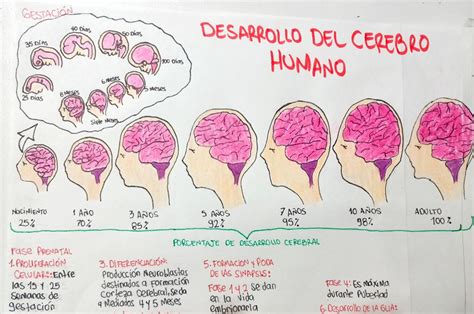 GESTACIÓN
25 Días
35 Días
40 Días
50 Días
100 Días
5 Meses
6 Meses
Siete Meses
8 Meses
DESARROLLO DEL CEREBRO
HUMANO
NACIMIENTO
25%
1 AÑO
70%
3 AÑOS
85%
5 AÑOS
92%
7 AÑOS
95%
10 AÑOS
98%
ADULTO
100%
PORCENTAJE DE DESARROLLO CEREBRAL
Fase PRENATAL
1. PROLIFERACIÓN
CELULAR: ENTRE
las 15 y 25
Semanas de
gestación
3. DIFERENCIACIÓN:
Producción Neuroblastos
destinados a Formación
Corteza Cerebral, se da
a Mediados 4 y 5 Meses
5. FORMACION y PODA
DE LAS SINAPSIS:
Fase 1 y 2 Se dan
en la vida
embrionaria
Fase 4: Es MÁXIMA
durante Pubertad
6. DESARROLLO DE LA GLIA: